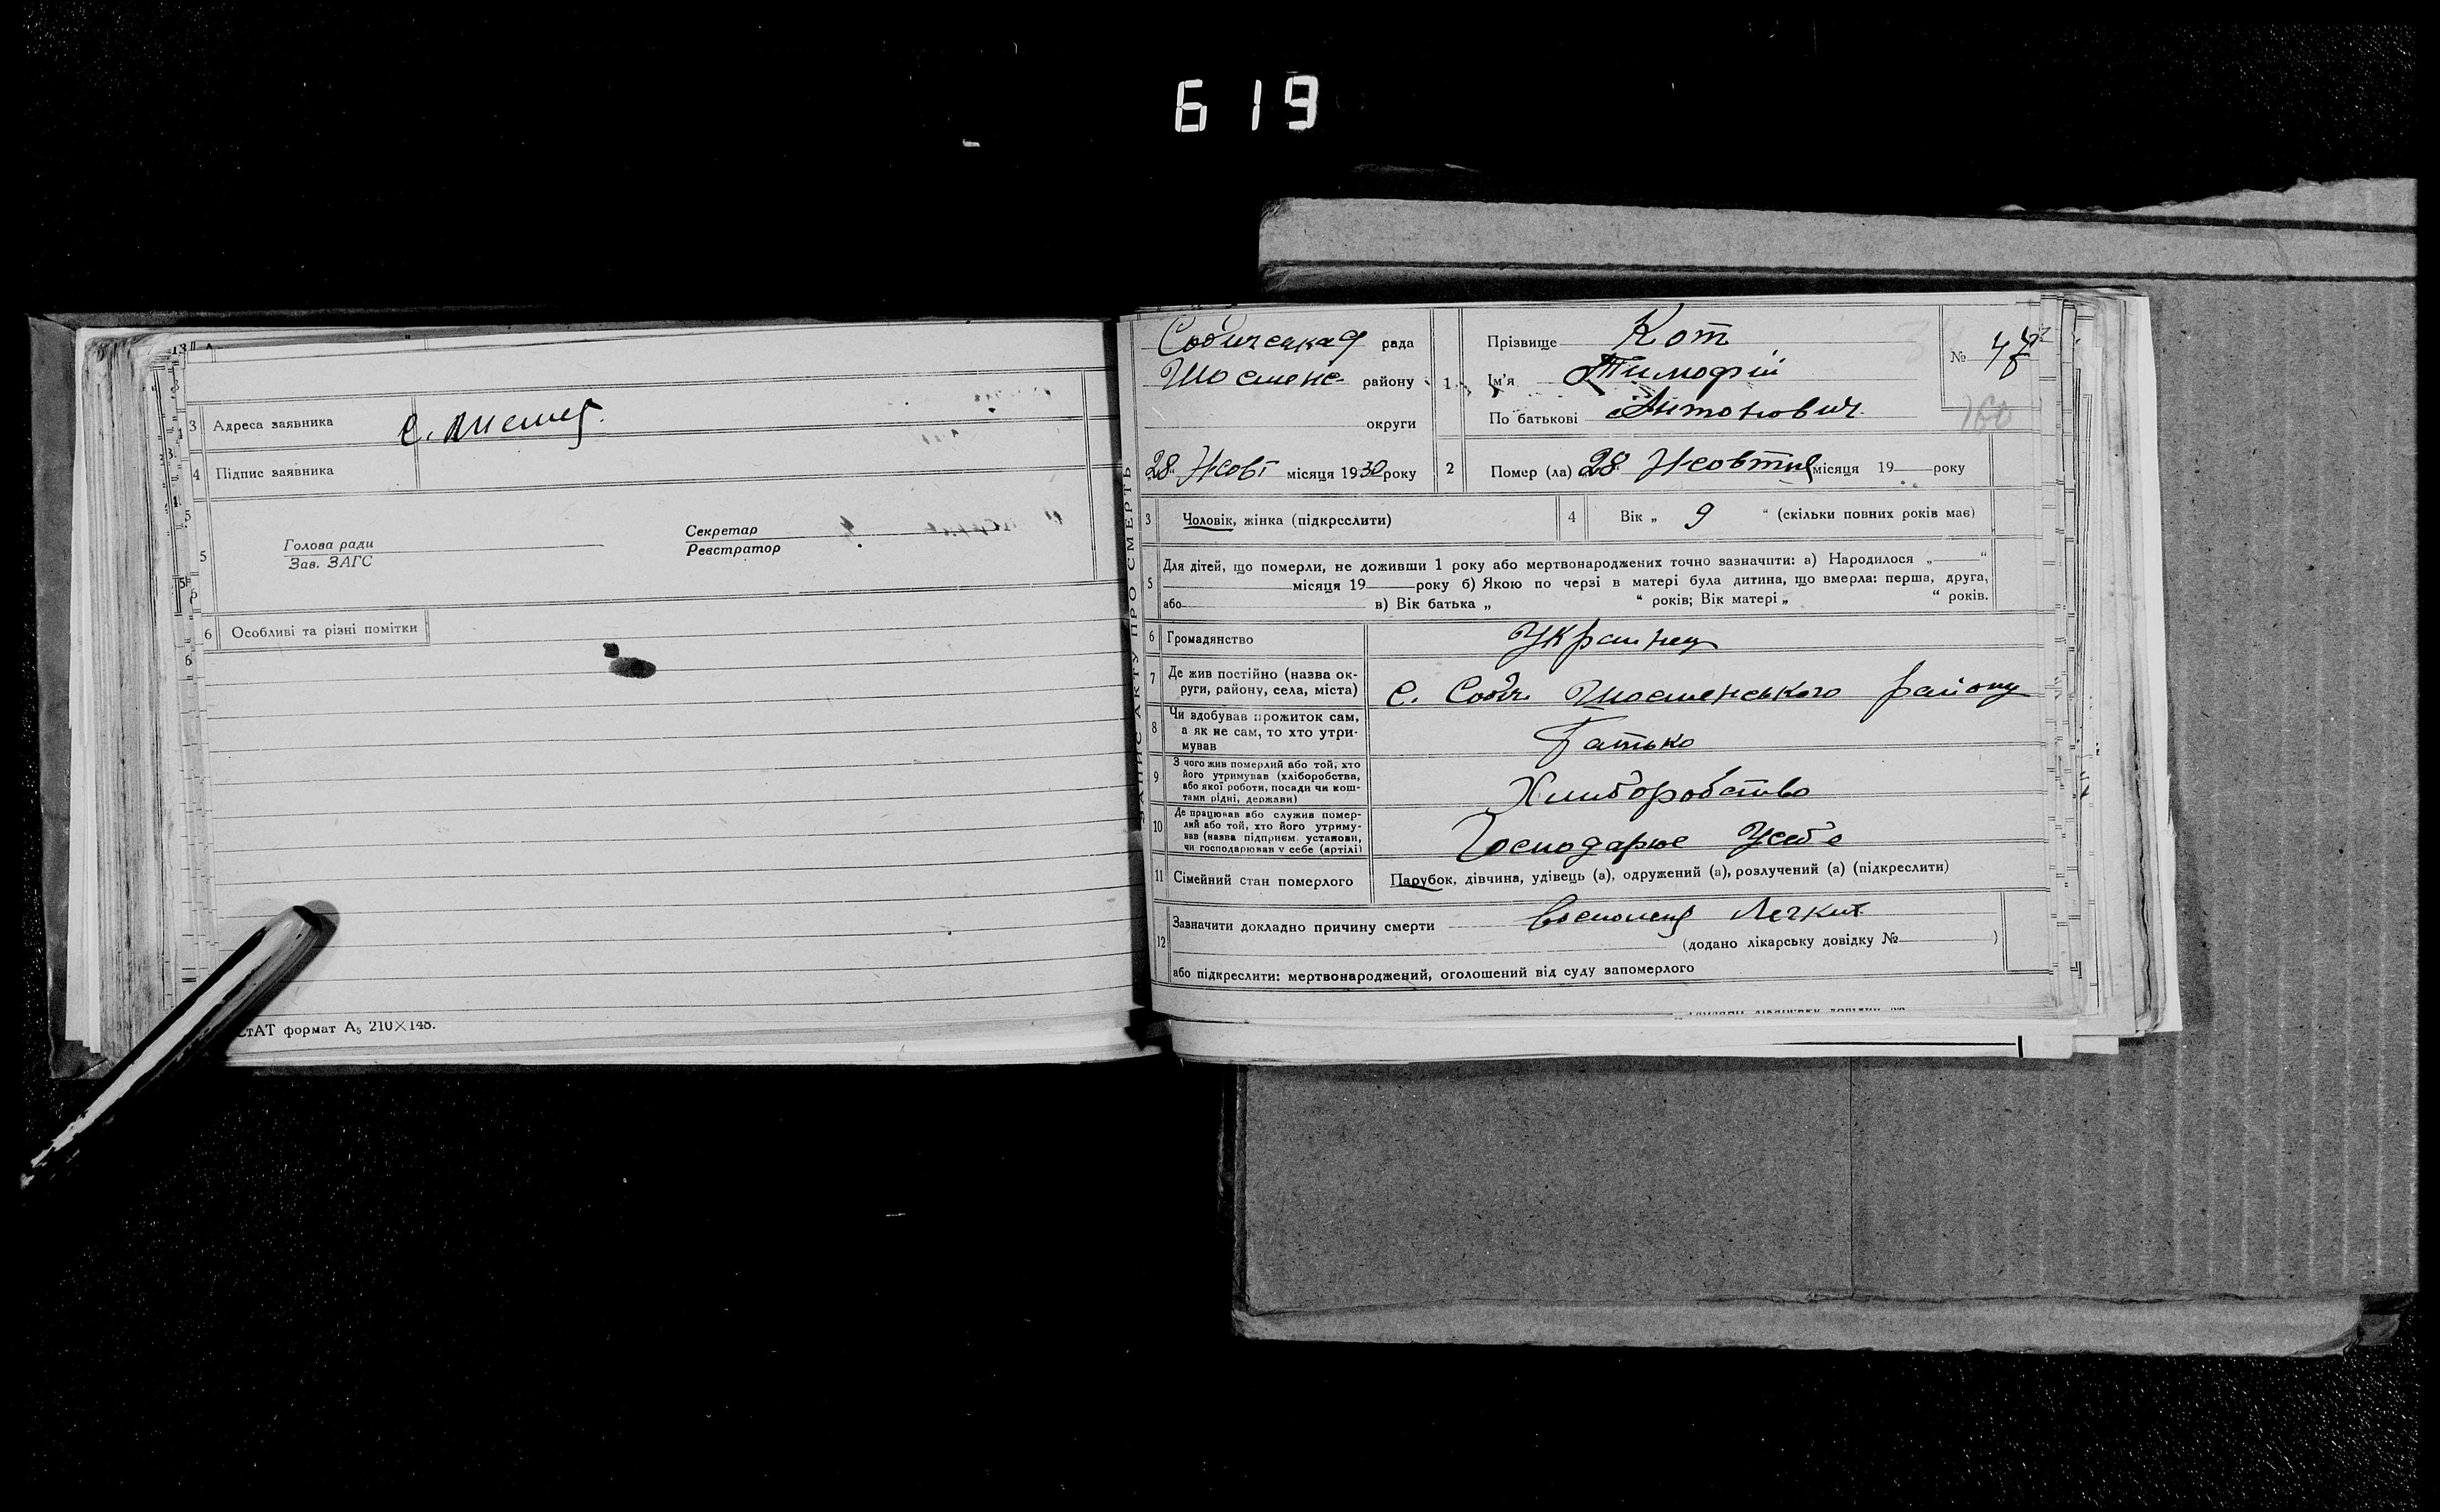 619
3 Адреса заявника
4 Підпис заявника
5 Голова ради
Зав. ЗАГС
Секретар
Реєстратор
6 Особливі та різні помітки
СтАТ формат А5 210×148.
ЗАПИС АКТУ ПРО СМЕРТЬ
Собичевская рада
Шостенс- району
округи
28 Жовт місяця 1930 року
1 Прізвище Кот
Ім'я Тимофій
По батькові Антонович
№ 47
160
2 Помер (ла) 28 Жовтня місяця 19 року
3 Чоловік, жінка (підкреслити)
4 Вік „ 9 “ (скільки повних років має)
5 Для дітей, що померли, не доживши 1 року або мертвонароджених точно зазначити: а) Народилося „ “
місяця 19 року б) Якою по черзі в матері була дитина, що вмерла: перша, друга,
або в) Вік батька „ “ років; Вік матері „ “ років.
6 Громадянство Украинец
7 Де жив постійно (назва ок-
руги, району, села, міста) с. Собич Шостенського району
8 Чи здобував прожиток сам,
а як не сам, то хто утри-
мував Батько
9 З чого жив померлий або той, хто
його утримував (хліборобства,
або якої роботи, посади чи кош-
тами рідні, держави) Хлиборобство
10 Де працював або служив помер-
лий або той, хто його утриму-
вав (назва підприєм. установи,
чи господарював у себе (артілі) Господарює Усебе
11 Сімейний стан померлого Парубок, дівчина, удівець (а), одружений (а), розлучений (а) (підкреслити)
12 Зазначити докладно причину смерти Легких
(додано лікарську довідку № )
або підкреслити: мертвонароджений, оголошений від суду запомерлого